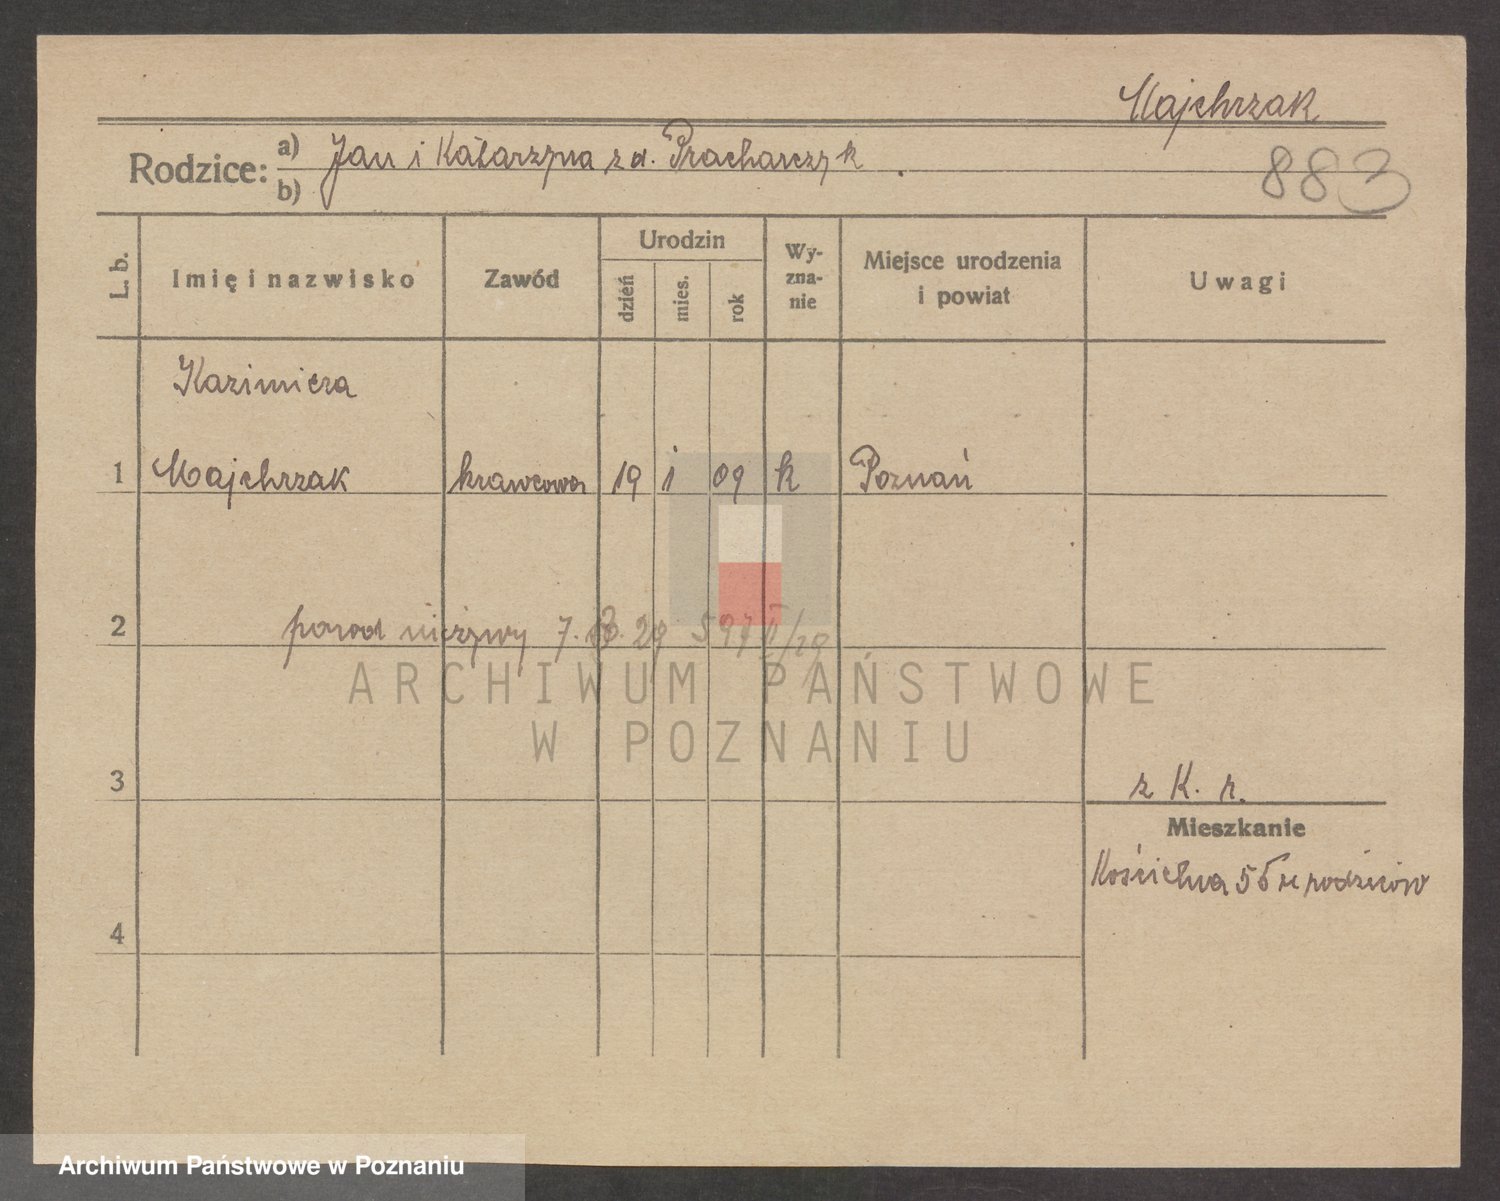 Majchrzak
883
Rodzice: a) Jan i Katarzyna z d. Pracharczyk
b)
L. b. Imię i nazwisko Zawód Urodzin dzień mies. rok Wyznanie Miejsce urodzenia i powiat Uwagi
Kazimiera
1 Majchrzak krawcowa 19 1 09 k Poznań
2 poród nieżywy 7. 29 597 II/29
3 z K. r.
Mieszkanie
Kościelna 56 u rodziców
4
ARCHIWUM PAŃSTWOWE
W POZNANIU
Archiwum Państwowe w Poznaniu